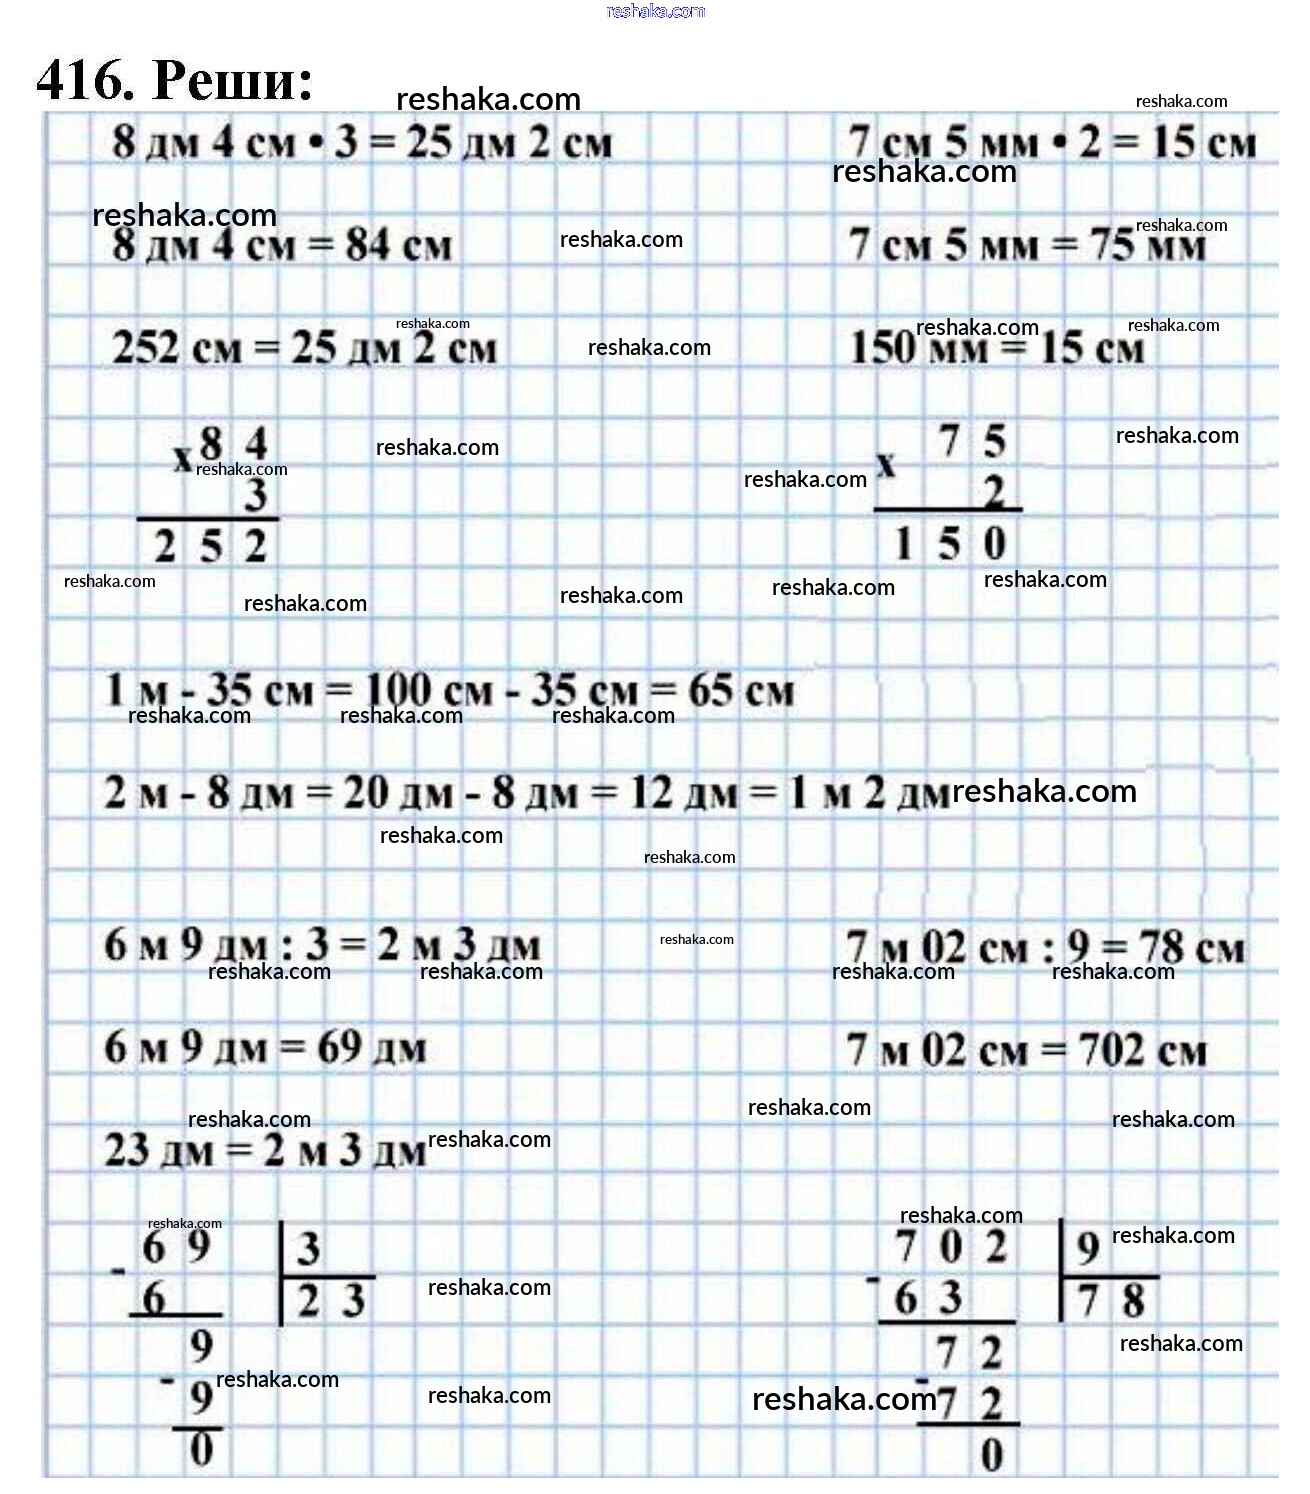 reshaka.com
416. Реши:
reshaka.com
reshaka.com
8 дм 4 см • 3 = 25 дм 2 см
7 см 5 мм • 2 = 15 см
reshaka.com
reshaka.com
reshaka.com
8 дм 4 см = 84 см
reshaka.com
7 см 5 мм = 75 мм
reshaka.com
252 см = 25 дм 2 см
reshaka.com
reshaka.com
reshaka.com
150 мм = 15 см
x 8 4
reshaka.com
3
2 5 2
reshaka.com
reshaka.com
x 7 5
2
1 5 0
reshaka.com
reshaka.com
reshaka.com
reshaka.com
reshaka.com
reshaka.com
1 м - 35 см = 100 см - 35 см = 65 см
reshaka.com reshaka.com reshaka.com
2 м - 8 дм = 20 дм - 8 дм = 12 дм = 1 м 2 дм
reshaka.com
reshaka.com
reshaka.com
6 м 9 дм : 3 = 2 м 3 дм
reshaka.com
7 м 02 см : 9 = 78 см
reshaka.com reshaka.com reshaka.com reshaka.com
6 м 9 дм = 69 дм
7 м 02 см = 702 см
reshaka.com
reshaka.com
reshaka.com
23 дм = 2 м 3 дм
reshaka.com
reshaka.com
- 6 9 3
6 2 3
9
- 9
0
reshaka.com
reshaka.com
reshaka.com
reshaka.com
- 7 0 2 9
6 3 7 8
7 2
- 7 2
0
reshaka.com
reshaka.com
reshaka.com